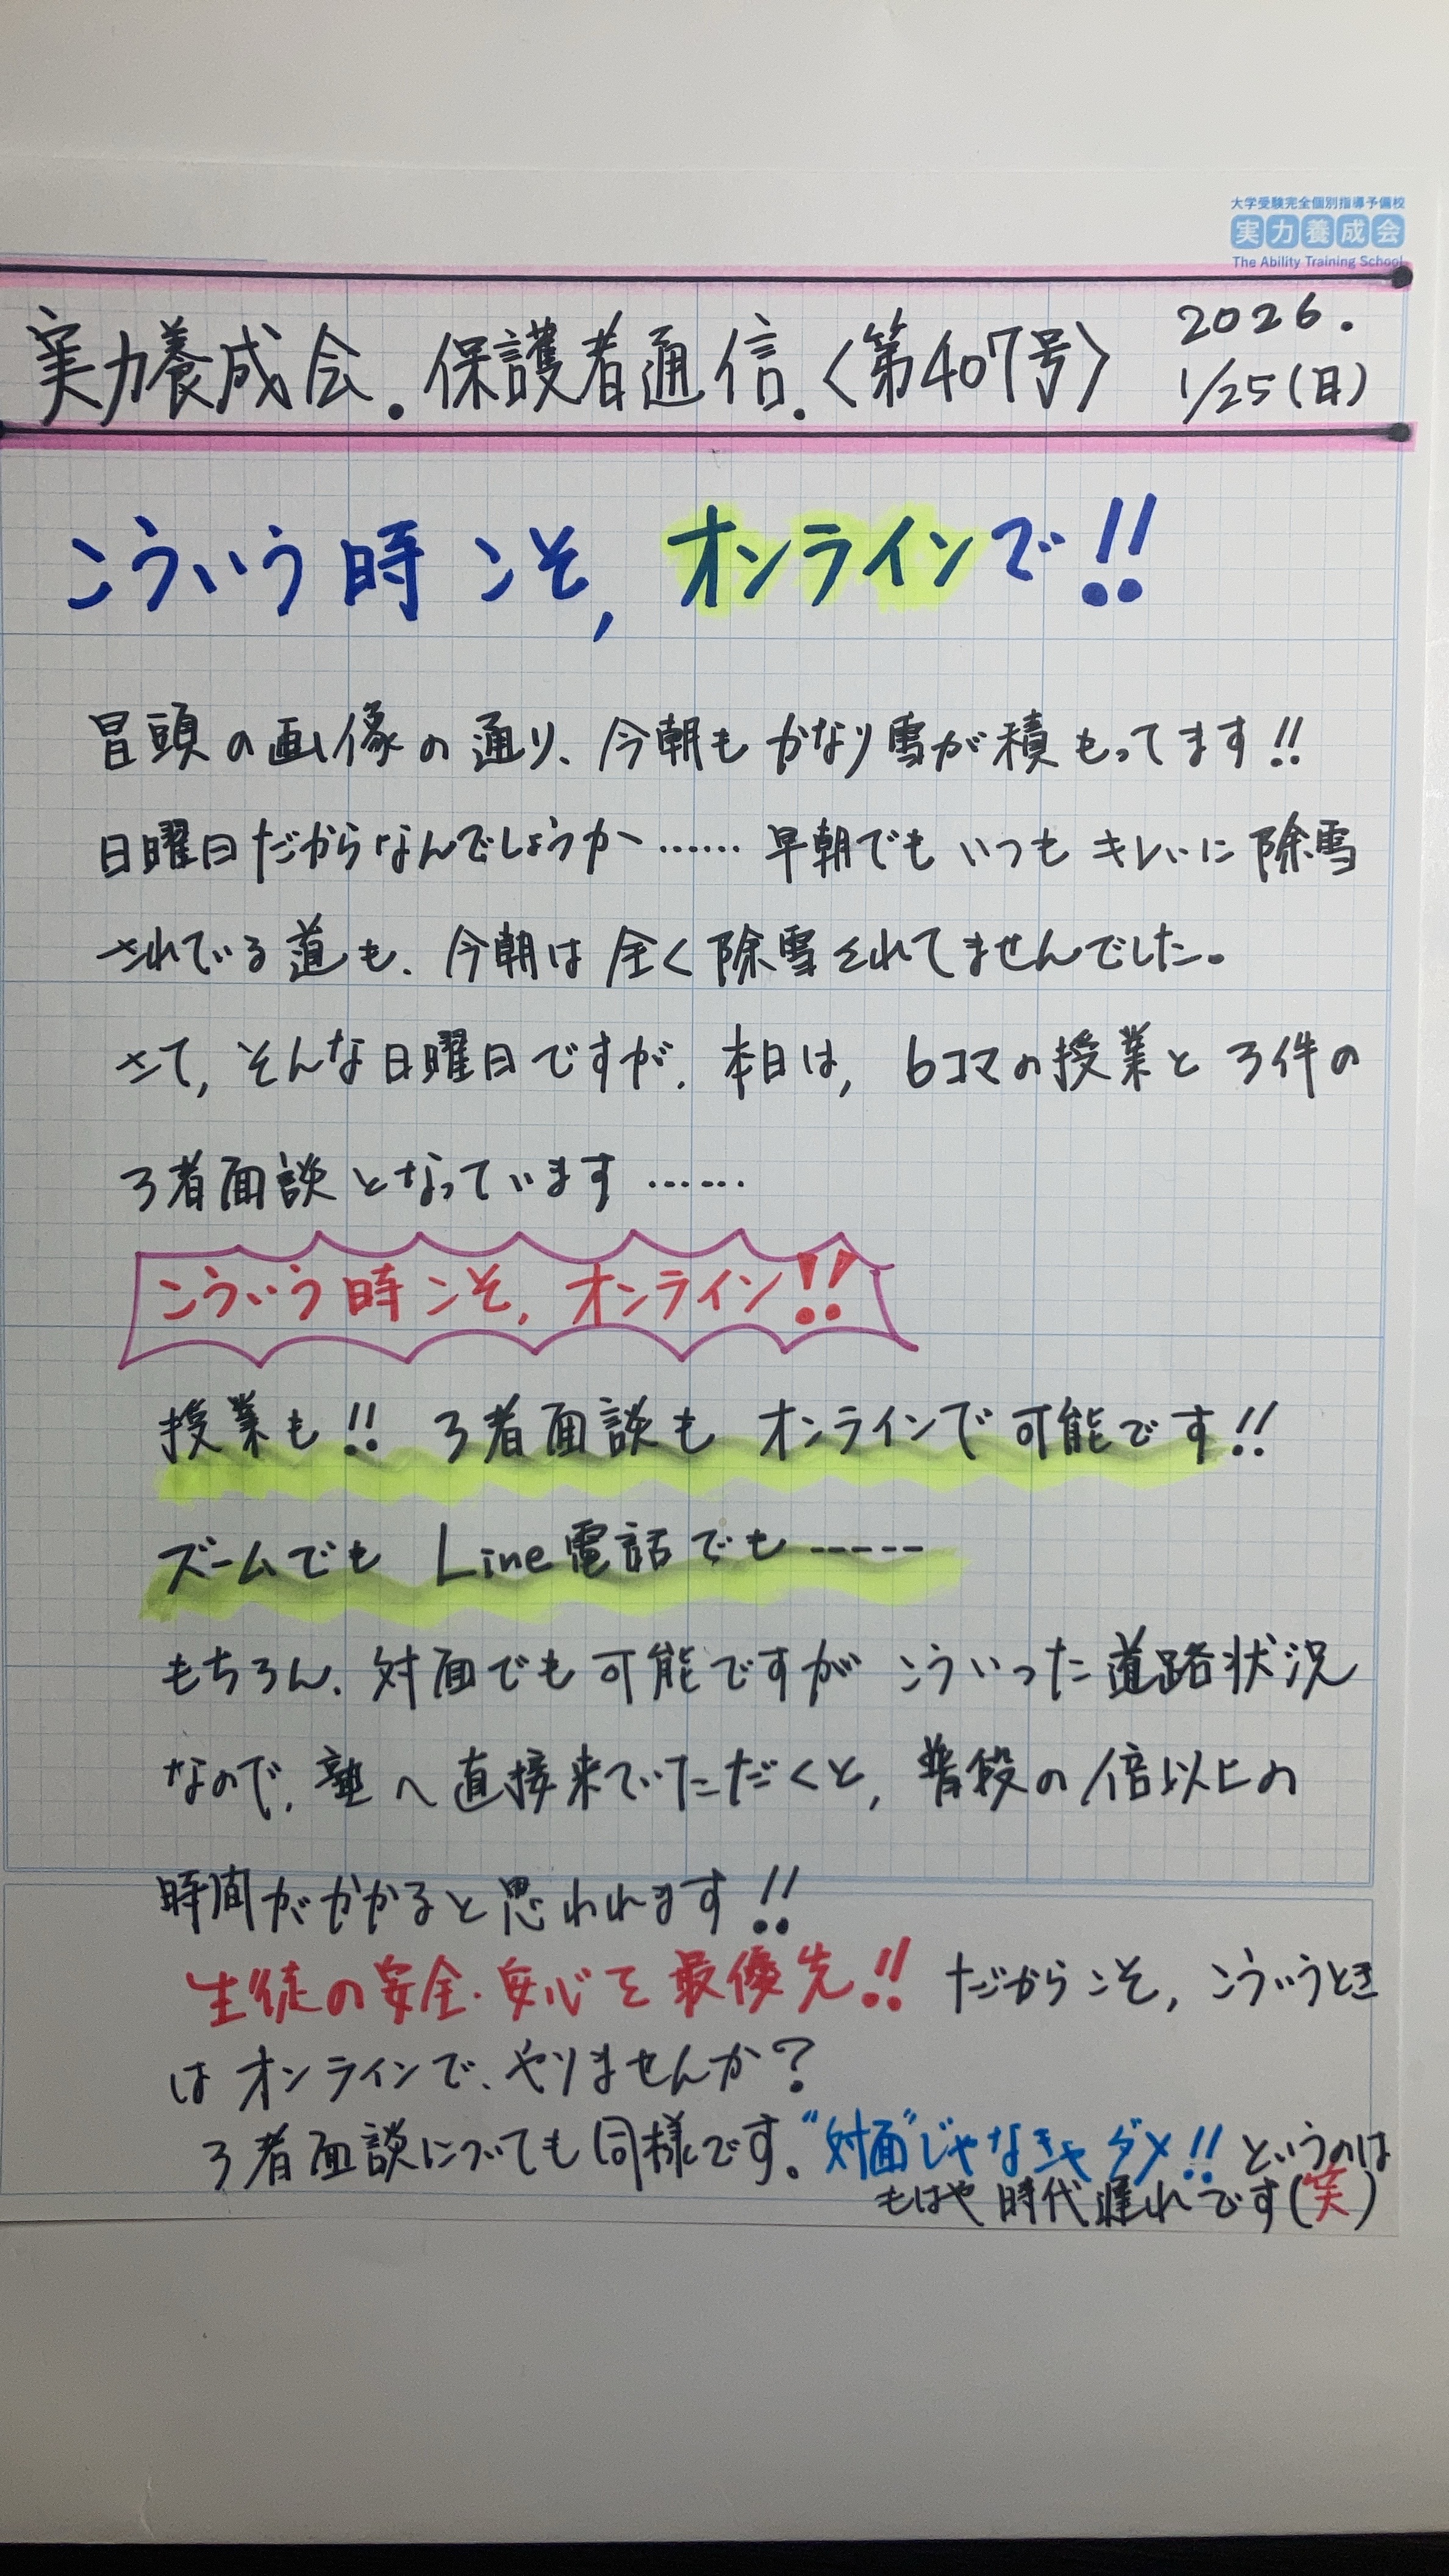 大学受験完全個別指導予備校
実力養成会
The Ability Training School
実力養成会.保護者通信.〈第407号〉
2026.
1/25(日)
こういう時こそ,オンラインで!!
冒頭の画像の通り、今朝もかなり雪が積もってます!!
日曜日だからなんでしょうか……早朝でもいつもキレいに除雪
されている道も、今朝は全く除雪されてませんでした。
さて,そんな日曜日ですが、本日は,6コマの授業と3件の
3者面談となっています……
こういう時こそ,オンライン!!
授業も!! 3者面談もオンラインで可能です!!
ズームでも Line電話でも-----
もちろん、対面でも可能ですがこういった道路状況
なので,塾へ直接来ていただくと,普段の倍以上の
時間がかかると思われます!!
生徒の安全・安心を最優先!! だからこそ,こういうとき
はオンラインで、やりませんか?
3者面談についても同様です。"対面"じゃなきゃダメ!!というのは
もはや時代遅れです(笑)